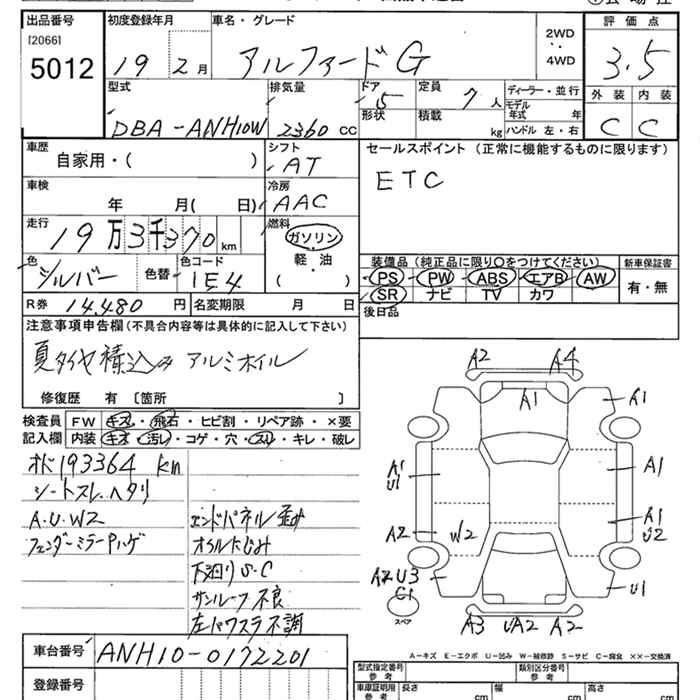 出品番号 初度登録年月 車名・グレード 評価点
[2066]
5012 19 2月 アルファードG 2WD
4WD 3.5
型式 排気量 ドア 定員 ディーラー・並行 外装 内装
DBA-ANH10W 2360 CC 5 7人 モデル年式 年 C C
形状 積載 kg ハンドル 左・右
車歴 シフト セールスポイント (正常に機能するものに限ります)
自家用・( ) AT ETC
車検 冷房
年 月( 日) AAC
走行 燃料
19万3千370km ガソリン
軽・油
( )
色 色替 色コード 装備品 (純正品に限り○をつけてください) 新車保証書
シルバー 1E4 PS PW ABS エアB AW 有・無
SR ナビ TV カワ
R券 14.480円 名変期限 月 日 後日品
注意事項申告欄 (不具合内容等は具体的に記入して下さい)
夏タイヤ積込み アルミホイル
修復歴 有 〔箇所 〕
検査員 FW キズ・飛石・ヒビ割・リペア跡・×要
記入欄 内装 キズ・汚レ・コゲ・穴・スレ・キレ・破レ
オド193364 km
シートスレ、ヘタリ
A.U.W2
フェンダーミラーPハゲ
エンドパネル歪み
オイルにじみ
下廻りS・C
サンルーフ不良
左パワステ不調
A2 A4
A1 A1
A1 U1 A1
A2 W2 A1 U2
A2 U3 C1 U1
スペア
A3 UA2 A2
A-キズ E-エクボ U-凹み W-補修跡 S-サビ C-腐食 ××-交換済
車台番号 ANH10-0172201
登録番号
型式指定番号 類別区分番号
車庫証明用 長さ cm 幅 cm 高さ cm